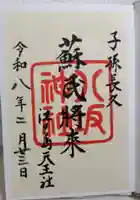 子孫長久
蘇民将来
津島天王社
令和八年二月廿三日
八坂神社